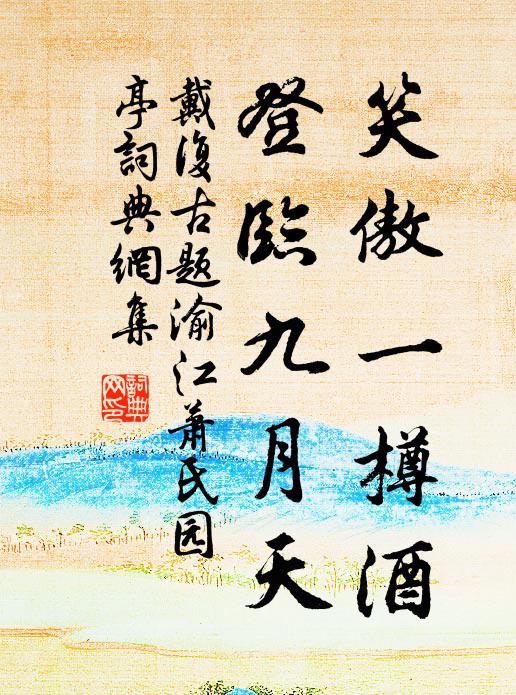 笑傲一樽酒
登臨九月天
戴復古题渝江萧氏园
亭詞典網集
詞典
网印